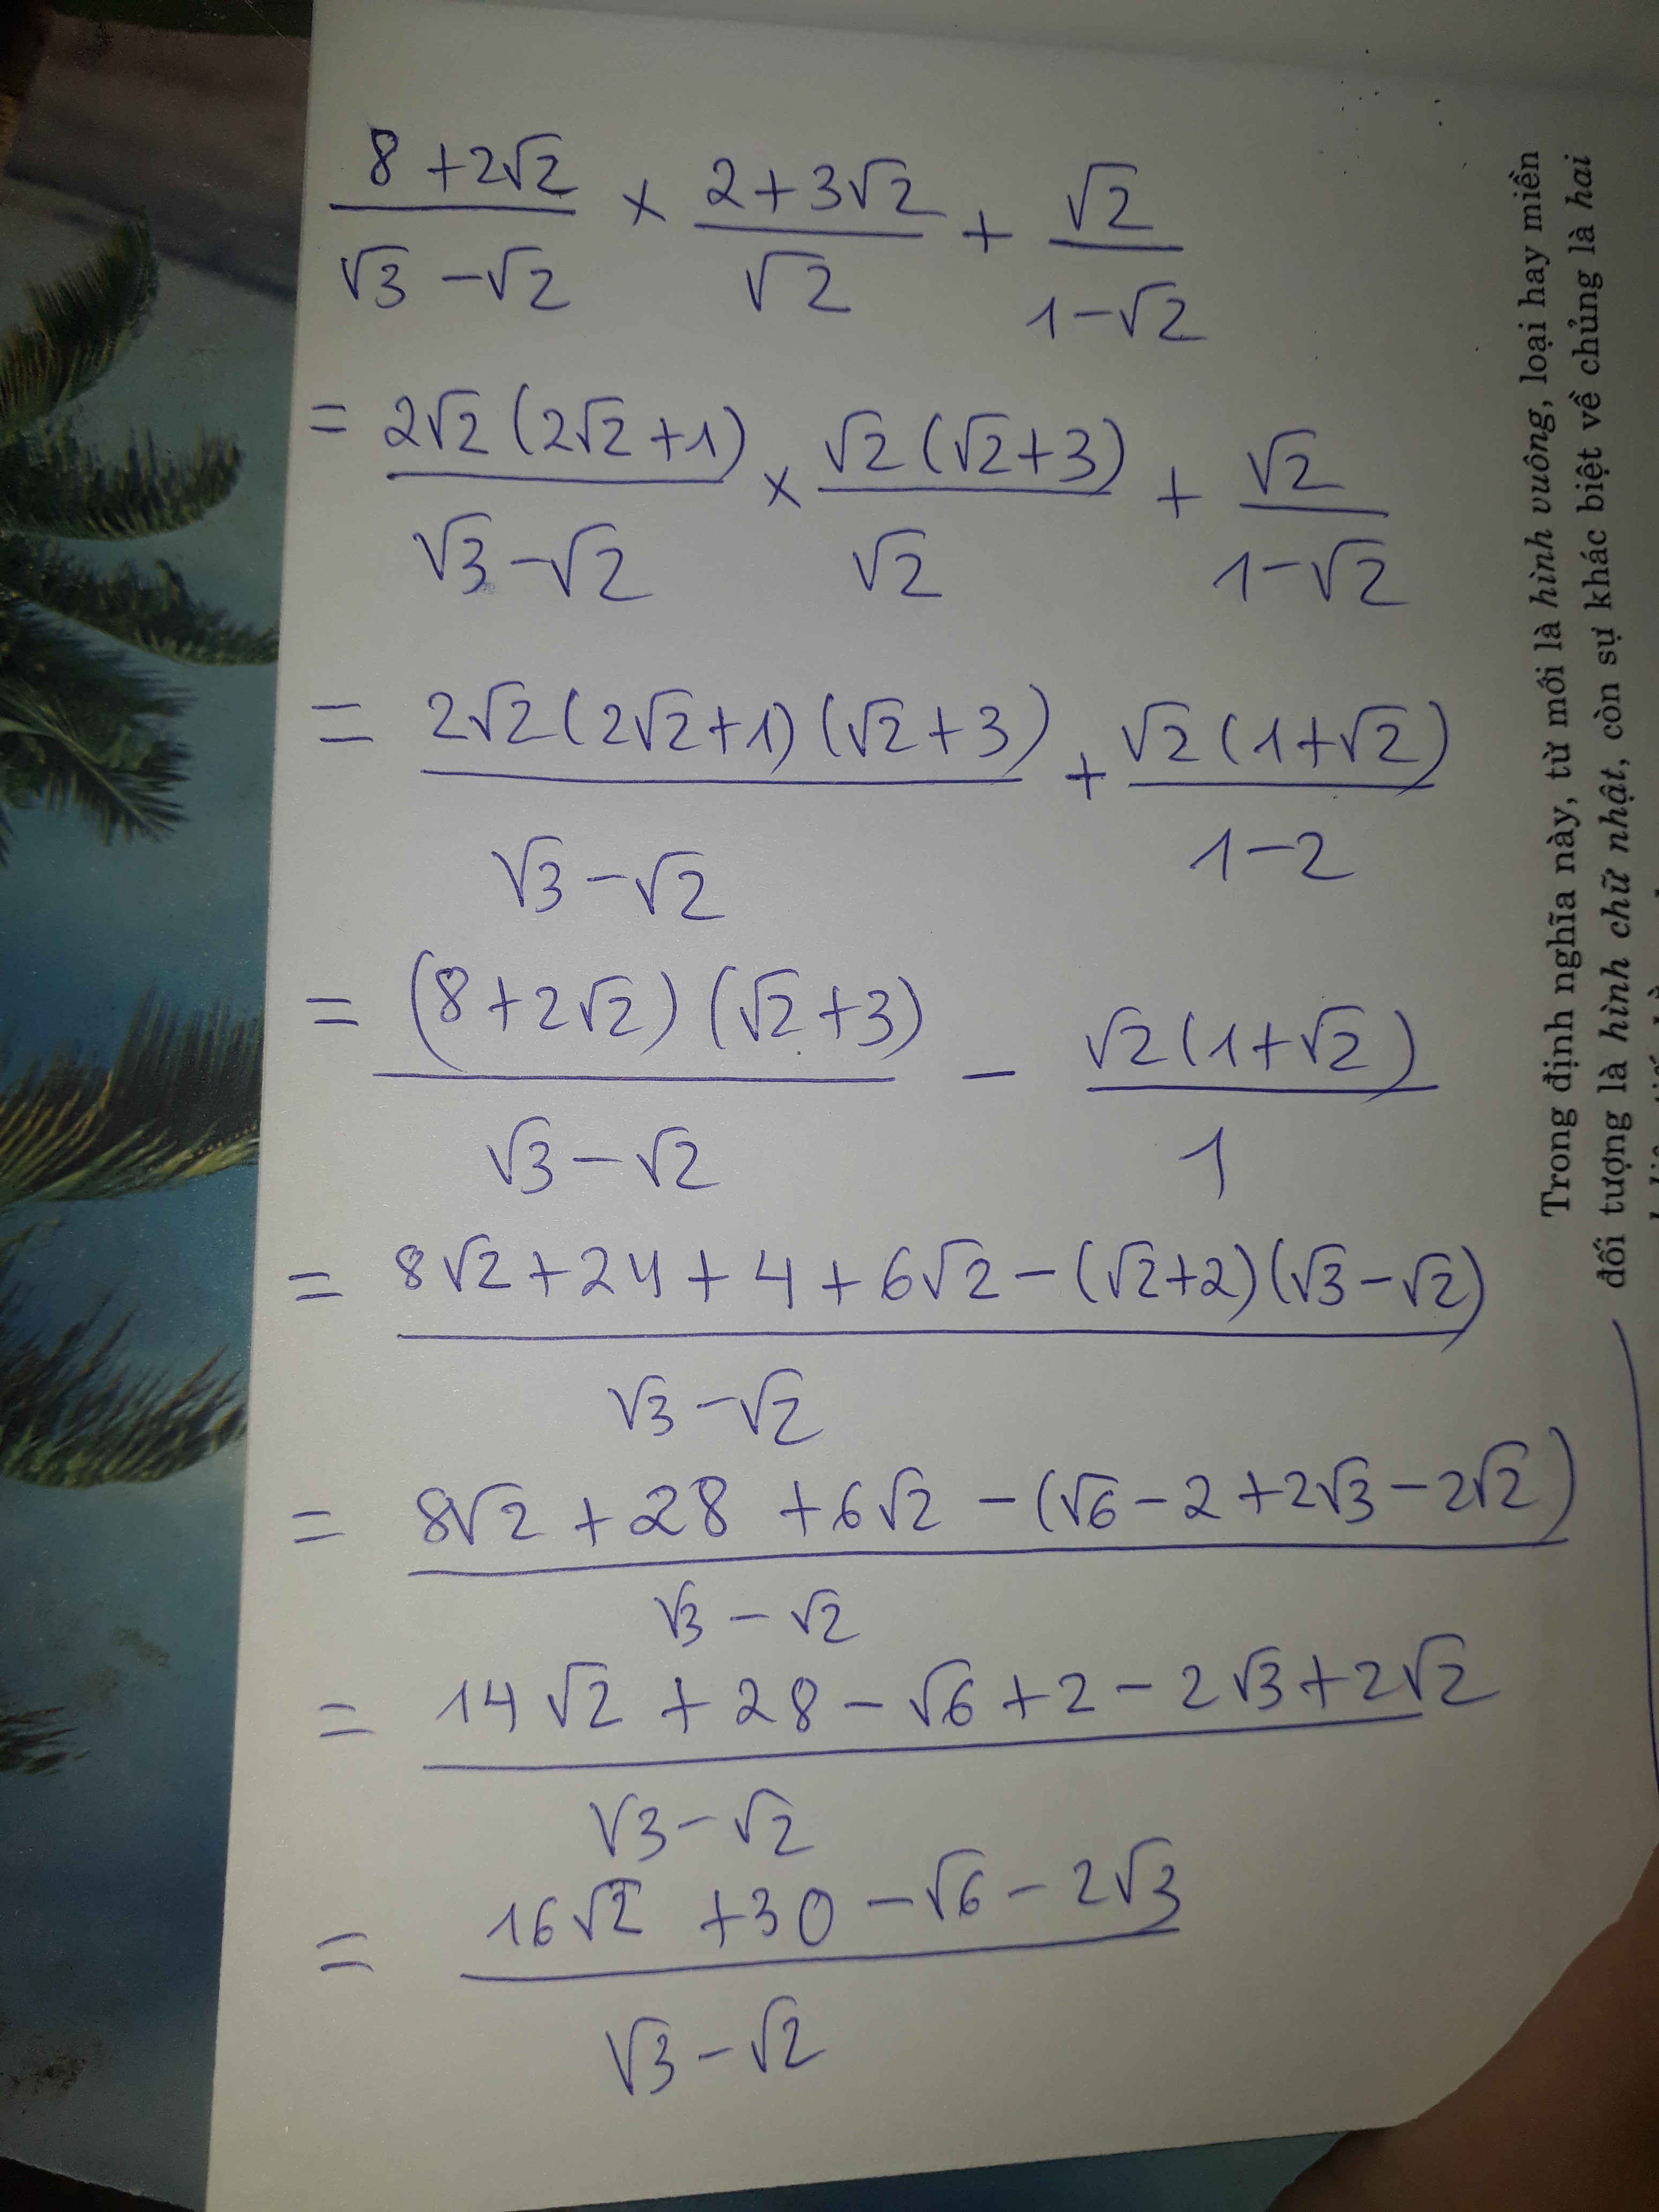 (8 + 2√2)/(√3 - √2) × (2 + 3√2)/√2 + √2/(1 - √2)
= 2√2(2√2 + 1)/(√3 - √2) × √2(√2 + 3)/√2 + √2/(1 - √2)
= 2√2(2√2 + 1)(√2 + 3)/(√3 - √2) + √2(1 + √2)/(1 - 2)
= (8 + 2√2)(√2 + 3)/(√3 - √2) - √2(1 + √2)/1
= (8√2 + 24 + 4 + 6√2 - (√2 + 2)(√3 - √2))/(√3 - √2)
= (8√2 + 28 + 6√2 - (√6 - 2 + 2√3 - 2√2))/(√3 - √2)
= (14√2 + 28 - √6 + 2 - 2√3 + 2√2)/(√3 - √2)
= (16√2 + 30 - √6 - 2√3)/(√3 - √2)
Trong định nghĩa này, từ mới là hình vuông, loại hay miền
đối tượng là hình chữ nhật, còn sự khác biệt về chủng là hai